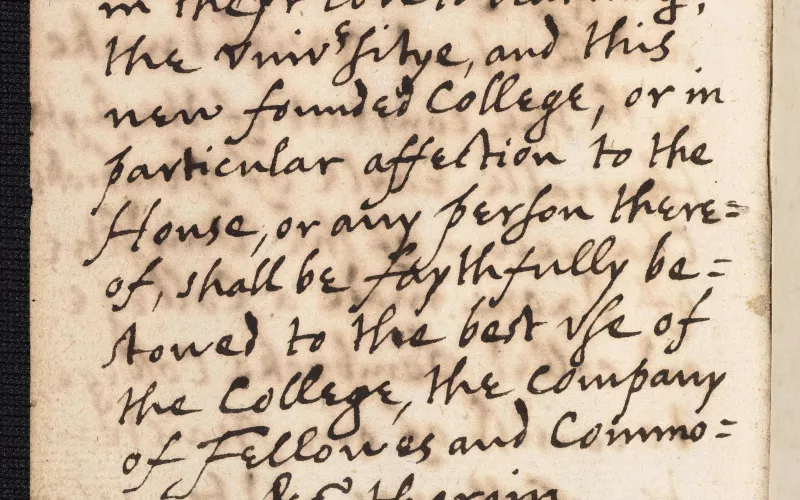 in theyr love to learning,
the Univsitye, and this
new founded College, or in
particular affection to the
House, or any person there=
of, shall be faythfully be=
stowed to the best use of
the College, the company
of Fellowes and Commo=
&c therin